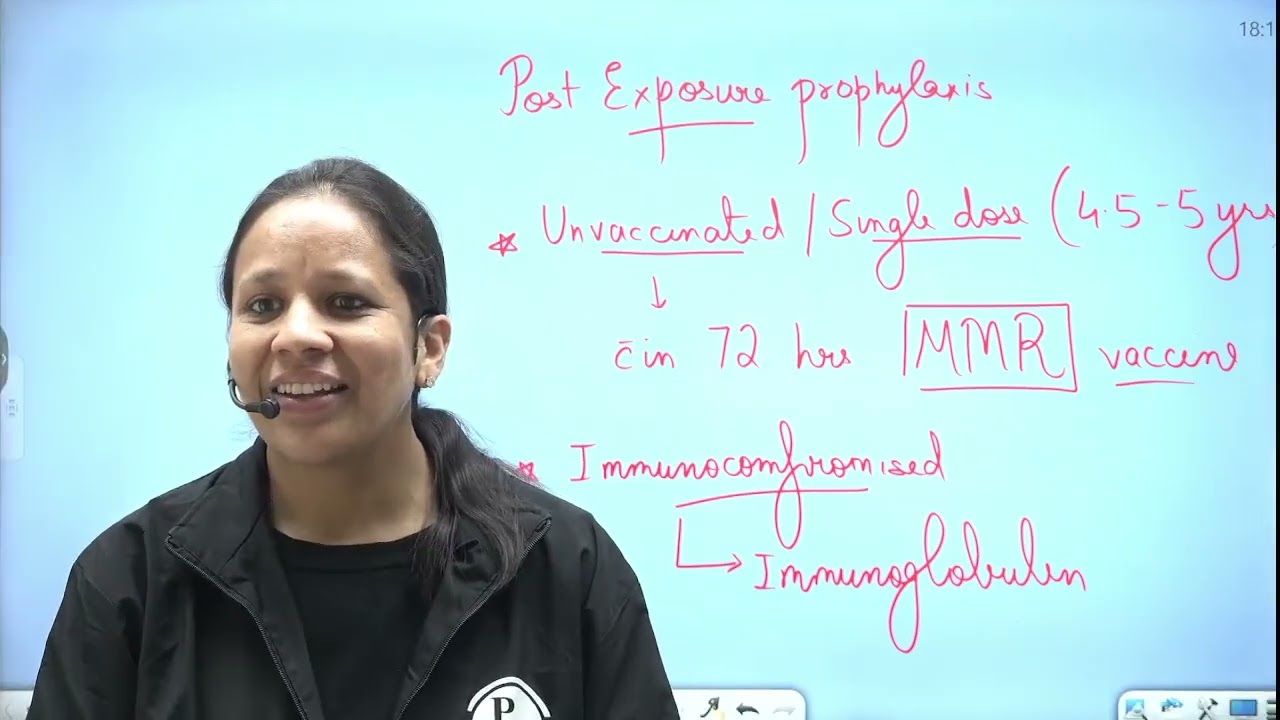 18:1
Post Exposure prophylaxis
Unvaccinated / Single dose (4.5-5 yrs
↓
c̄in 72 hrs MMR vaccine
Immunocompromised
Immunoglobulin
P